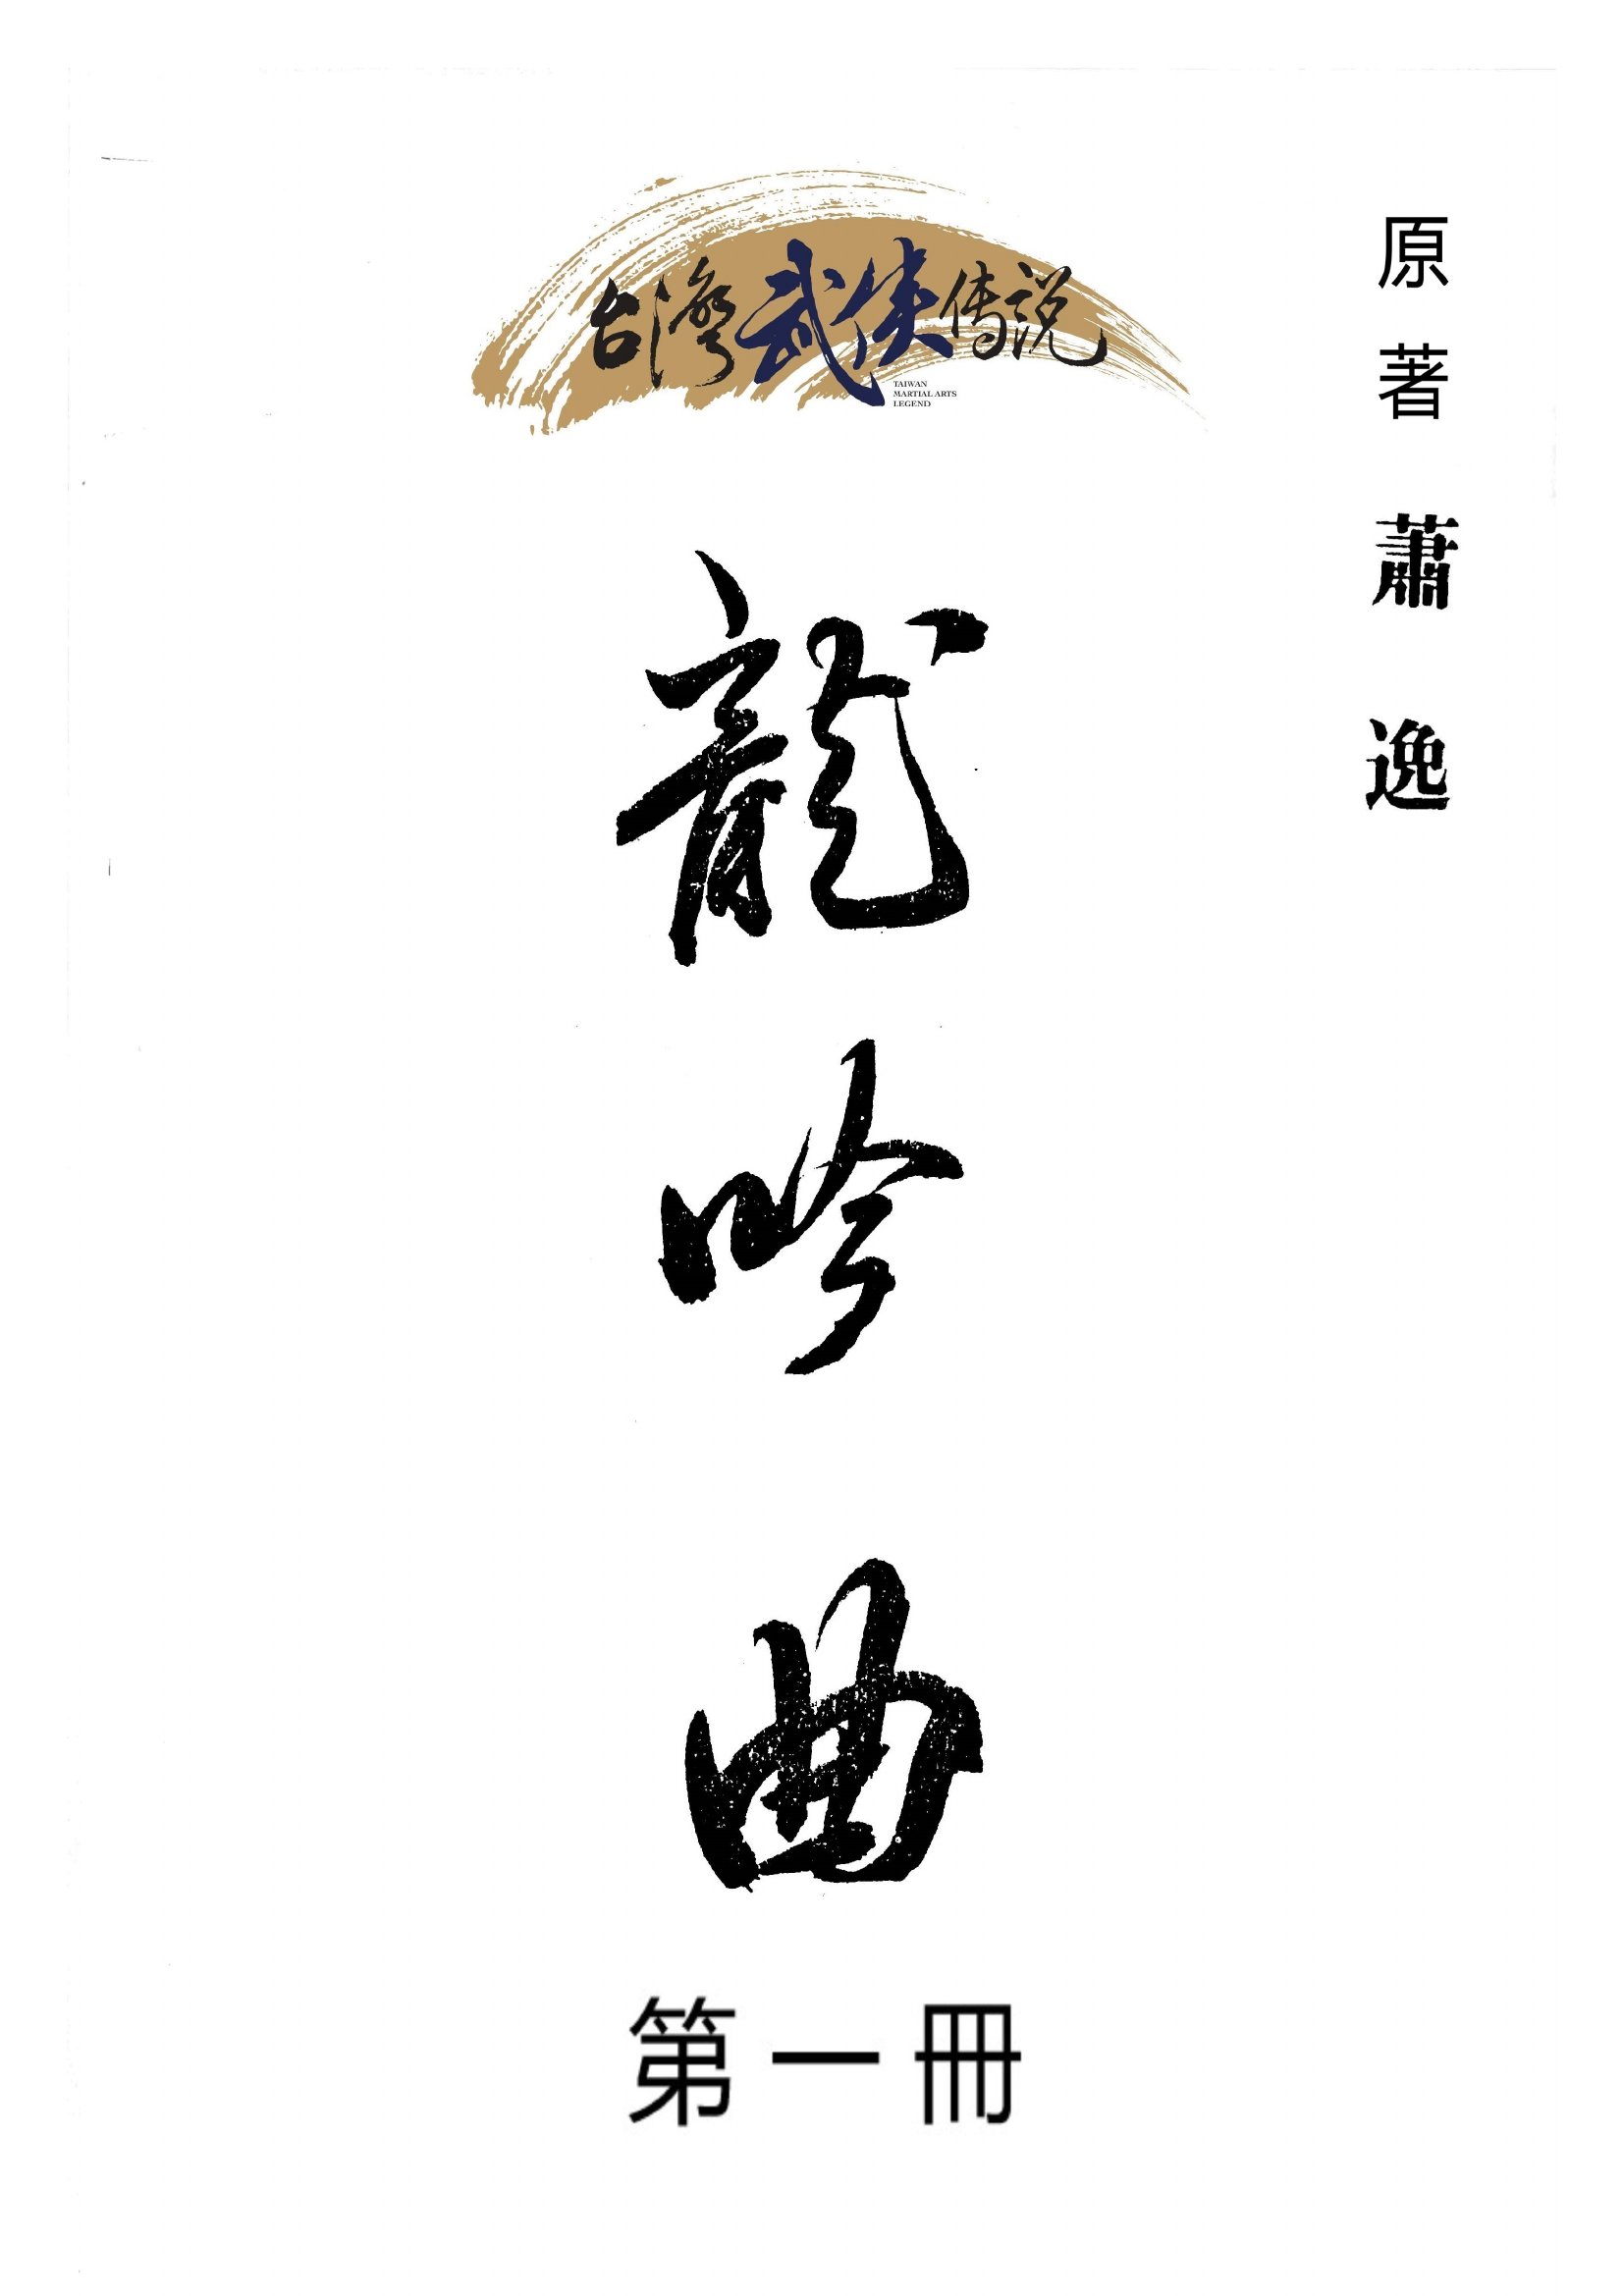 台灣武俠传说
TAIWAN
MARTIAL ARTS
LEGEND
原著 蕭逸
龍吟曲
第一冊